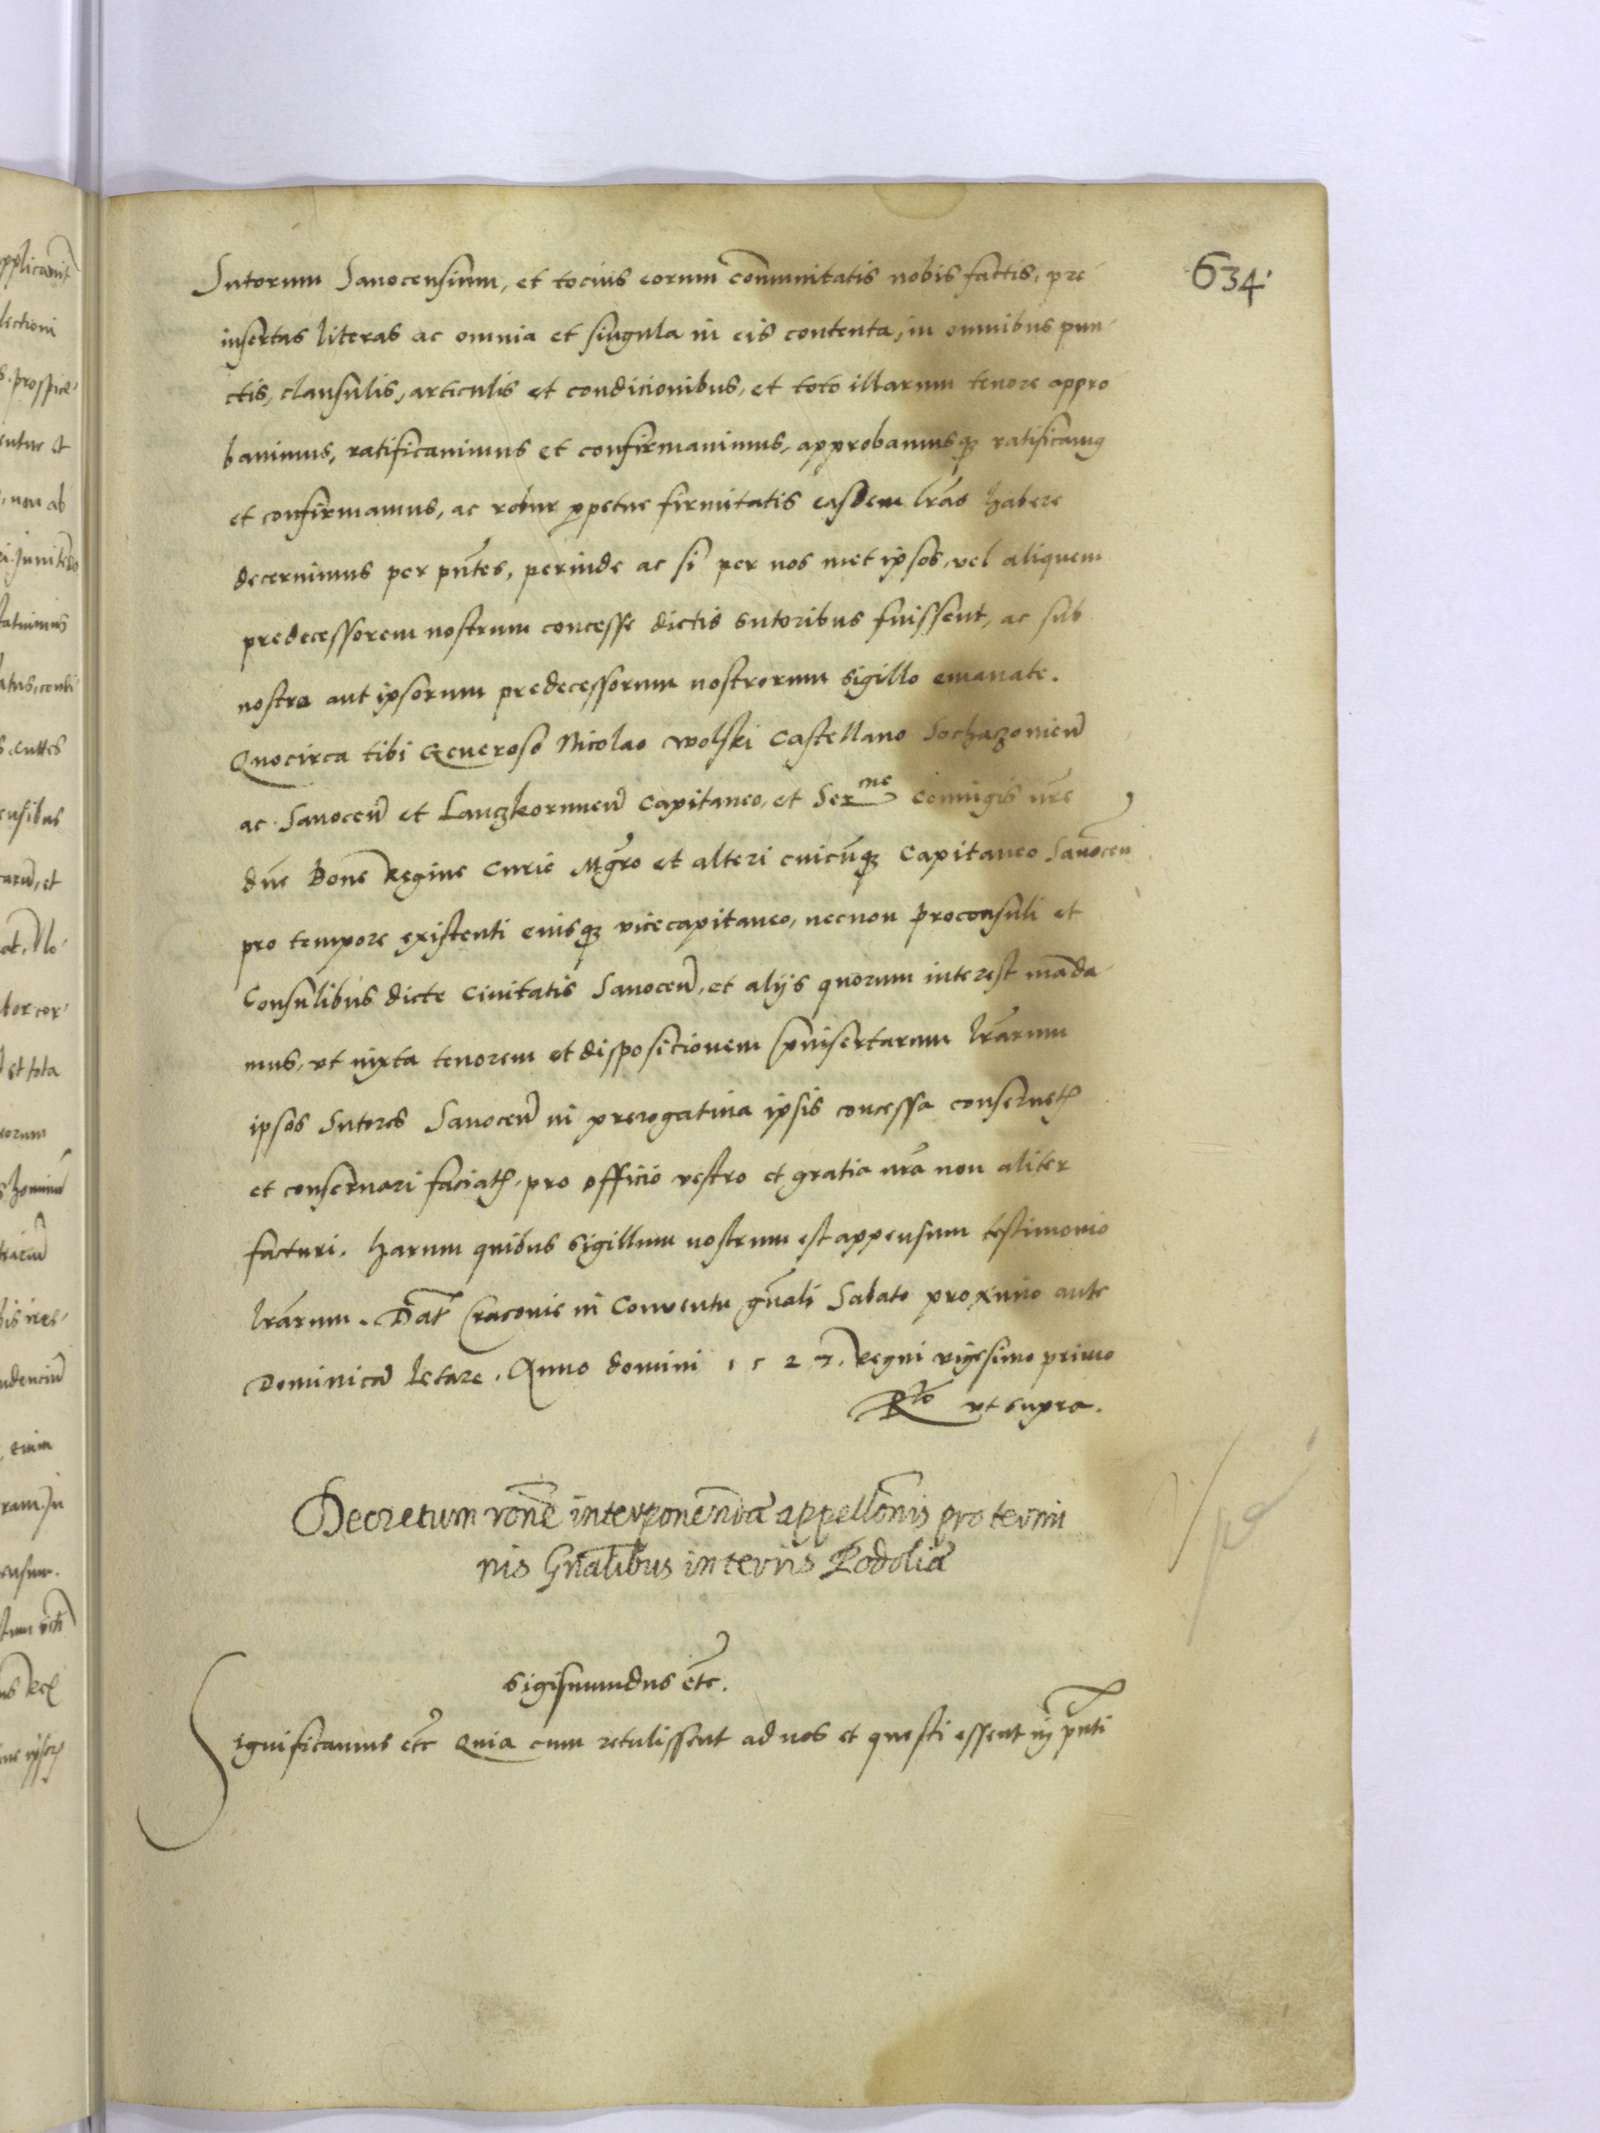 634.
Sutorum Sanocensium, et tocius eorum com̄unitatis nobis factis, pre
insertas literas ac omnia et singula in eis contenta, in omnibus pun-
ctis, clausulis, articulis et condicionibus, et toto illarum tenore appro
bauimus, ratificauimus et confirmauimus, approbamusqȝ ratificamꝰ
et confirmamus, ac robur ꝑpetue firmitatis easdem l̅ras habere
decernimus per pn̄tes, perinde ac si per nos met ipsos, vel aliquem
predecessorem nostrum concesse dictis sutoribus fuissent, ac sub
nostro aut ipsorum predecessorum nostrorum sigillo emanate.
Quocirca tibi Generoso Nicolao Wolski Castellano Sochaczouien̄
ac Sanocen̄ et Lanczkorunen̄ Capitaneo, et Ser^me Coniugis nr̄e
dn̄e Bone Regine Curie Mgr̄o et alteri cuicūqȝ Capitaneo Sanocen̄
pro tempore existenti eiusqȝ vicecapitaneo, necnon proconsuli et
Consulibus dicte Ciuitatis Sanocen̄, et alijs quorum interest māda-
mus, vt iuxta tenorem et disposicionem p̄insertarum l̅rarum
ipsos Sutores Sanocen̄ in prerogatiua ipsis concessa conseruet͛
et conseruari faciat͛, pro officio vestro et gratia nr̄a non aliter
facturi. Harum quibus sigillum nostrum est appensum testimonio
l̅rarum. Dat̄ Cracouie in Conuentu gn̄ali Sabato proximo ante
Dominicā letare. Anno domini 1527. Regni vigesimo primo
R^to vt supra.
Decretum rōne interponendæ appellōnis pro termi
nis Gn̄alibus in terris Podoliæ
Sigismundus etc̄.
Significamus etc̄ Quia cum retulissent ad nos et questi essent in pn̄ti